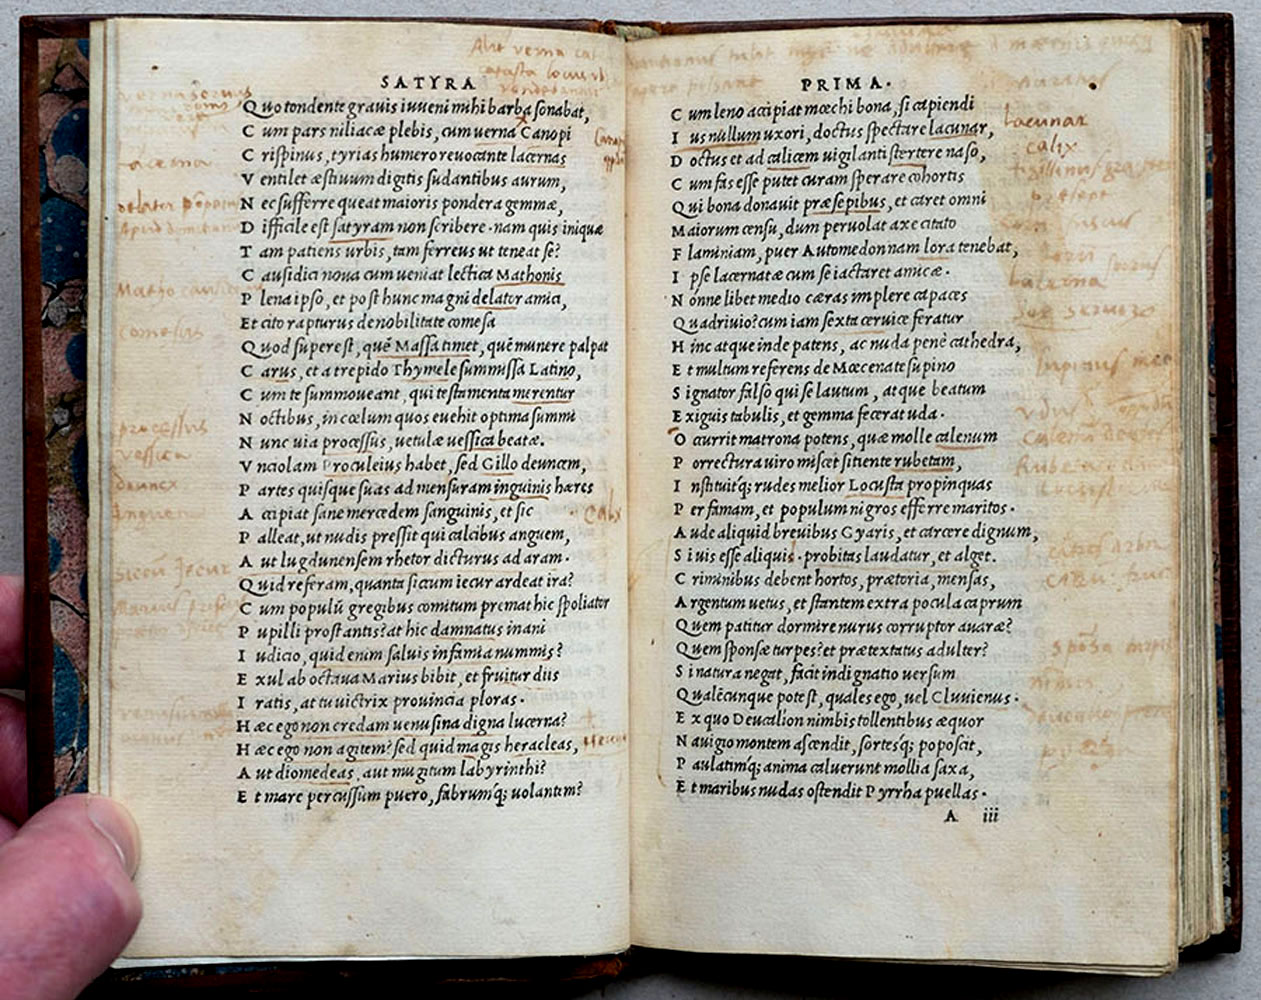 SATYRA
Quo tondente grauis iuueni mihi barba sonabat,
Cum pars niliacæ plebis, cum uerna Canopi
Crispinus, tyrias humero reuocante lacernas
Ventilet æstiuum digitis sudantibus aurum,
Nec sufferre queat maioris pondera gemmæ,
Difficile est satyram non scribere. nam quis iniquæ
Tam patiens urbis, tam ferreus ut teneat se?
Causidici noua cum ueniat lectica Mathonis
Plena ipso, et post hunc magni delator amici,
Et cito rapturus de nobilitate comesa
Quod superest, quē Massa timet, quē munere palpat
Carus, et a trepido Thymele summissa Latino,
Cum te summoueant, qui testamenta merentur
Noctibus, in cœlum quos euehit optima summi
Nunc uia processus, uetulæ uessica beatæ.
Vnciolam Proculeius habet, sed Gillo deuncem,
Partes quisque suas ad mensuram inguinis hæres
Accipiat sane mercedem sanguinis, et sic
Palleat, ut nudis pressit qui calcibus anguem,
Aut lugdunensem rhetor dicturus ad aram.
Quid referam, quanta siccum iecur ardeat ira?
Cum populū gregibus comitum premat hic spoliator
Pupilli prostantis? at hic damnatus inani
Iudicio, quid enim saluis infamia nummis?
Exul ab octaua Marius bibit, et fruitur diis
Iratis, at tu uictrix prouincia ploras.
Hæc ego non credam uenusina digna lucerna?
Hæc ego non agitem? sed quid magis heracleas,
Aut diomedeas, aut mugitum labyrinthi?
Et mare percussum puero, fabrumq; uolantem?
PRIMA.
Cum leno accipiat mœchi bona, si capiendi
Ius nullum uxori, doctus spectare lacunar,
Doctus et ad calicem uigilanti stertere naso,
Cum fas esse putet curam sperare cohortis
Qui bona donauit præsepibus, et caret omni
Maiorum censu, dum peruolat axe citato
Flaminiam, puer Automedon nam lora tenebat,
Ipse lacernatæ cum se iactaret amicæ.
Nonne libet medio cæras implere capaces
Quadriuio? cum iam sexta ceruice feratur
Hinc atque inde patens, ac nuda penè cathedra,
Et multum referens de Mœcenate supino
Signator falso qui se lautum, atque beatum
Exiguis tabulis, et gemma fecerat uda.
Occurrit matrona potens, quæ molle calenum
Porrectura uiro miscet sitiente rubetam,
Instituitq; rudes melior Locusta propinquas
Per famam, et populum nigros efferre maritos.
Aude aliquid breuibus Gyaris, et carcere dignum,
Si uis esse aliquis. probitas laudatur, et alget.
Criminibus debent hortos, prætoria, mensas,
Argentum uetus, et stantem extra pocula caprum
Quem patitur dormire nurus corruptor auaræ?
Quem sponsæ turpes? et prætextatus adulter?
Si natura negat, facit indignatio uersum
Qualēcunque potest, quales ego, uel Cluuienus.
Ex quo Deucalion nimbis tollentibus æquor
Nauigio montem ascendit, sortesq; poposcit,
Paulatimq; anima caluerunt mollia saxa,
Et maribus nudas ostendit Pyrrha puellas.
A iii
lacunar
calix